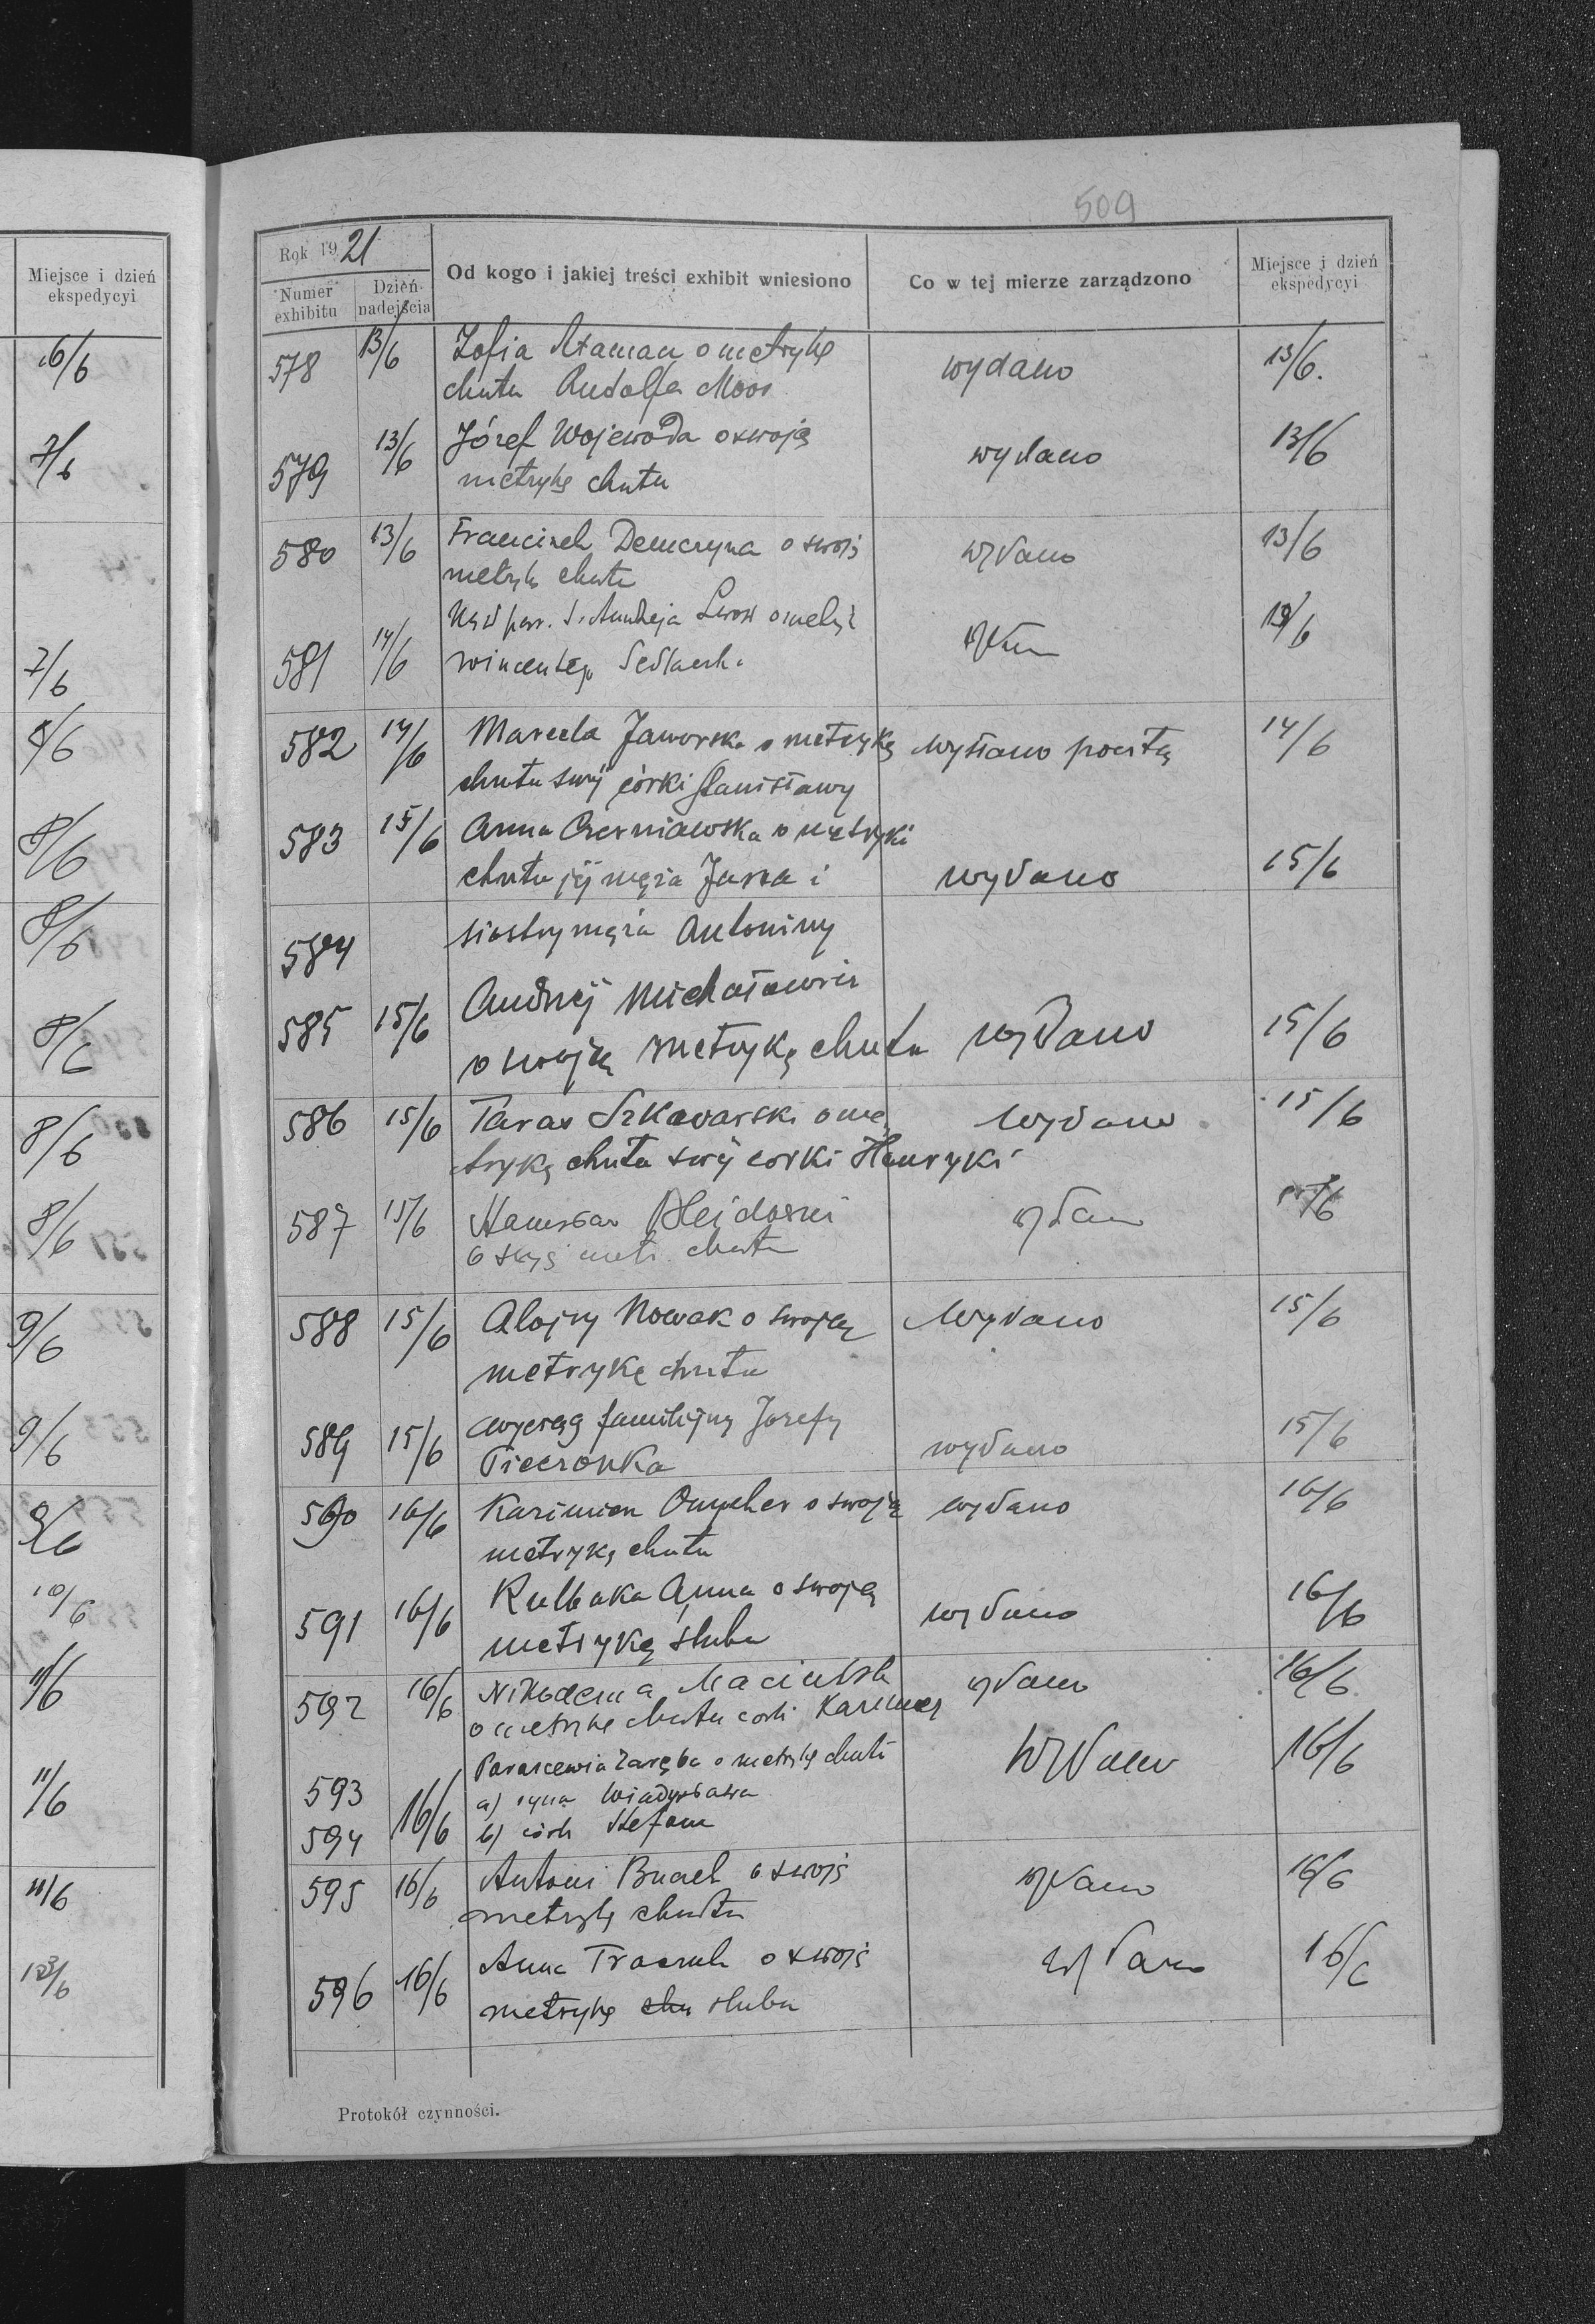 Miejsce i dzień
ekspedycyi
16/6
7/6
7/6
8/6
8/6
8/6
8/6
8/6
8/6
9/6
9/6
9/6
10/6
11/6
11/6
11/6
509
Rok 1921
Numer exhibitu
Dzień nadejścia
Od kogo i jakiej treści exhibit wniesiono
Co w tej mierze zarządzono
Miejsce i dzień ekspedycyi
578 13/6 Zofia Ataman o metrykę wydano 13/6.
chrztu Rudolfa Moos
579 13/6 Józef Wojewoda o swoją wydano 13/6
metrykę chrztu
580 13/6 Franciszek o swoją wydano 13/6
metrykę chrztu
Urząd par. S. Andrzeja Lwow o metrykę
581 14/6 Wincentego wydano
582 14/6 Marcela Jaworska o metrykę wysłano pocztą 14/6
chrztu swej córki Stanisławy
583 15/6 Anna Czerniawska o metryki
chrztu jej męża Jana i wydano 15/6
584 siostry męża Antoniny
585 15/6 Andrzej Michałowicz
o swoją metrykę chrztu wydano 15/6
586 15/6 Taras Szkawarski o me wydano 15/6
trykę chrztu swej corki Henryki
587 15/6 Stanisław wydano 15/6
o swoją metr. chrztu
588 15/6 Alojzy Nowak o swoją wydano 15/6
metrykę chrztu
589 15/6 wyciąg familijny Jozefy wydano 15/6
Pieczonka
590 16/6 Kazimierz o swoją wydano 16/6
metrykę chrztu
591 16/6 Kulbaka Anna o swoją wydano 16/6
metrykę ślubu
592 16/6 Nikodema wydano 16/6
o metrykę chrztu corki
Parascewia Zaręba o metrykę chrztu wydano 16/6
593 a) syna Władysława
594 16/6 b) córki Stefanii
595 16/6 Antoni o swoją wydano 16/6
metrykę chrztu
596 16/6 Anna Traczuk o swoją wydano 16/6
metrykę chu ślubu
Protokół czynności.